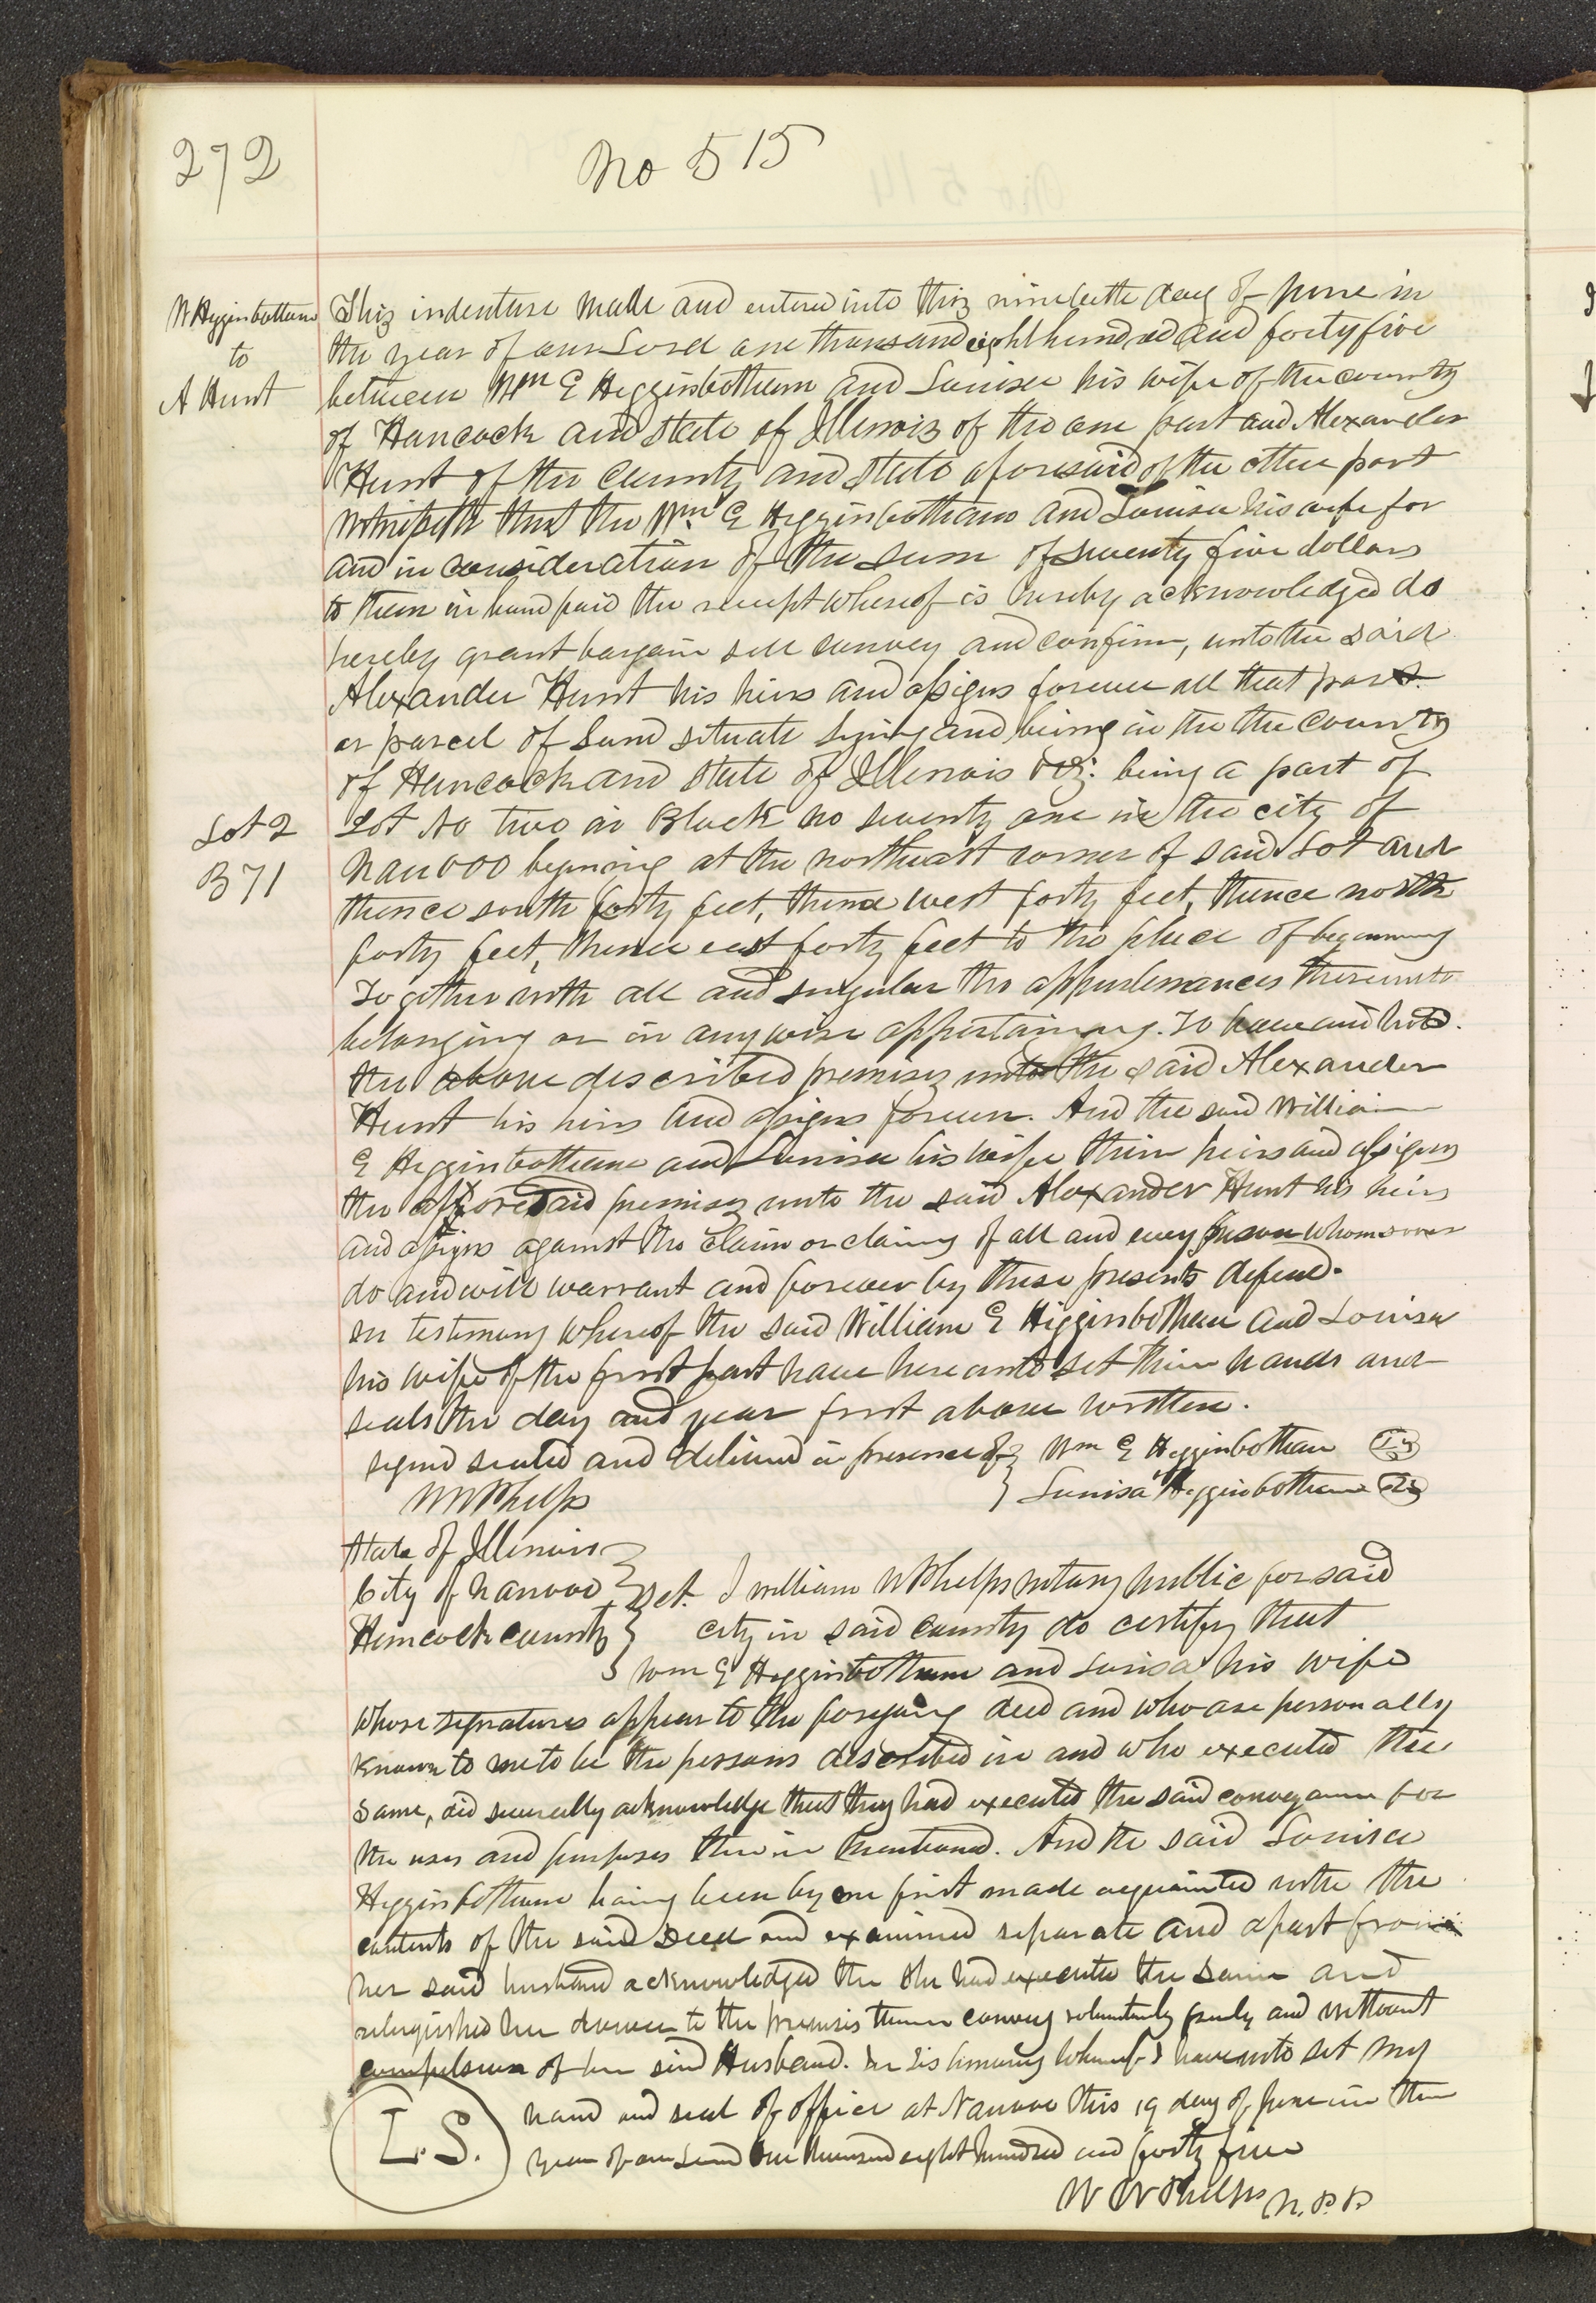 272
No 515
W Higginbotham
to
A Hunt
This indenture made and entered into this nineteeth day of June in
the year of our Lord one thousand eight hundred and forty five
between Wm E Higginbotham and Louisa his wife of the county
of Hancock and state of Illinois of the one part and Alexander
Hunt of the County and state aforesaid of the other part
Witnesseth that the Wm E Higginbotham and Louisa his wife for
and in consideration of the sum of seventy five dollars
to them in hand paid the receipt whereof is hereby acknowledged do
hereby grant bargain sell convey and confirm, unto the said
Alexander Hunt his heirs and assigns forever all that part
or parcel of Land situate lying and being in the the County
of Hancock and State of Illinois viz: being a part of
Lot 2
B 71
Lot No two in Block no seventy one in the city of
Nauvoo begining at the northeast corner of said Lot and
thence south forty feet, thence west forty feet, thence north
forty feet, thence east forty feet to the place of beginning
Together with all and singular the appurtenances thereunto
belonging or in anywise appertaining. To have and hold.
the above described premises unto the said Alexander
Hunt his heirs and assigns forever. And the said William
E Higginbotham and Louisa his wife their heirs and assigns
the afforesaid premises unto the said Alexander Hunt his heirs
and assigns against the claim or claims of all and every person whomsover
do and will warrant and forever by these presents defend.
In testimony whereof the said William E Higginbotham and Louisa
his wife of the first part have hereunto set their hands and
seals the day and year first above written.
signed sealed and delivered in presence of } Wm E Higginbotham
W W Phelps } Louisa Higginbotham
State of Illinois
City of Nauvoo } Sct. I William W Phelps notary public for said
Hancock county } city in said County do certify that
Wm E Higginbotham and Louisa his wife
whose signatures appear to the foregoing deed and who are personally
known to me to be the persons described in and who executed the
same, did severally acknowledge that they had executed the said conveyance for
the uses and purposes therein mentioned. And the said Louisa
Higginbotham having been by me first made acquainted with the
contents of the said Deed and examined separate and apart from
her said husband acknowledged the she had executed the same and
relinquished her dower to the premises therein convey voluntarily freely and without
compulsion of her said Husband. In testimony whereof I have unto set my
L.S.
hand and seal of office at Nauvoo this 19 day of June in the
year of our Lord one thousand eight hundred and forty five
W W Phelps N.P.